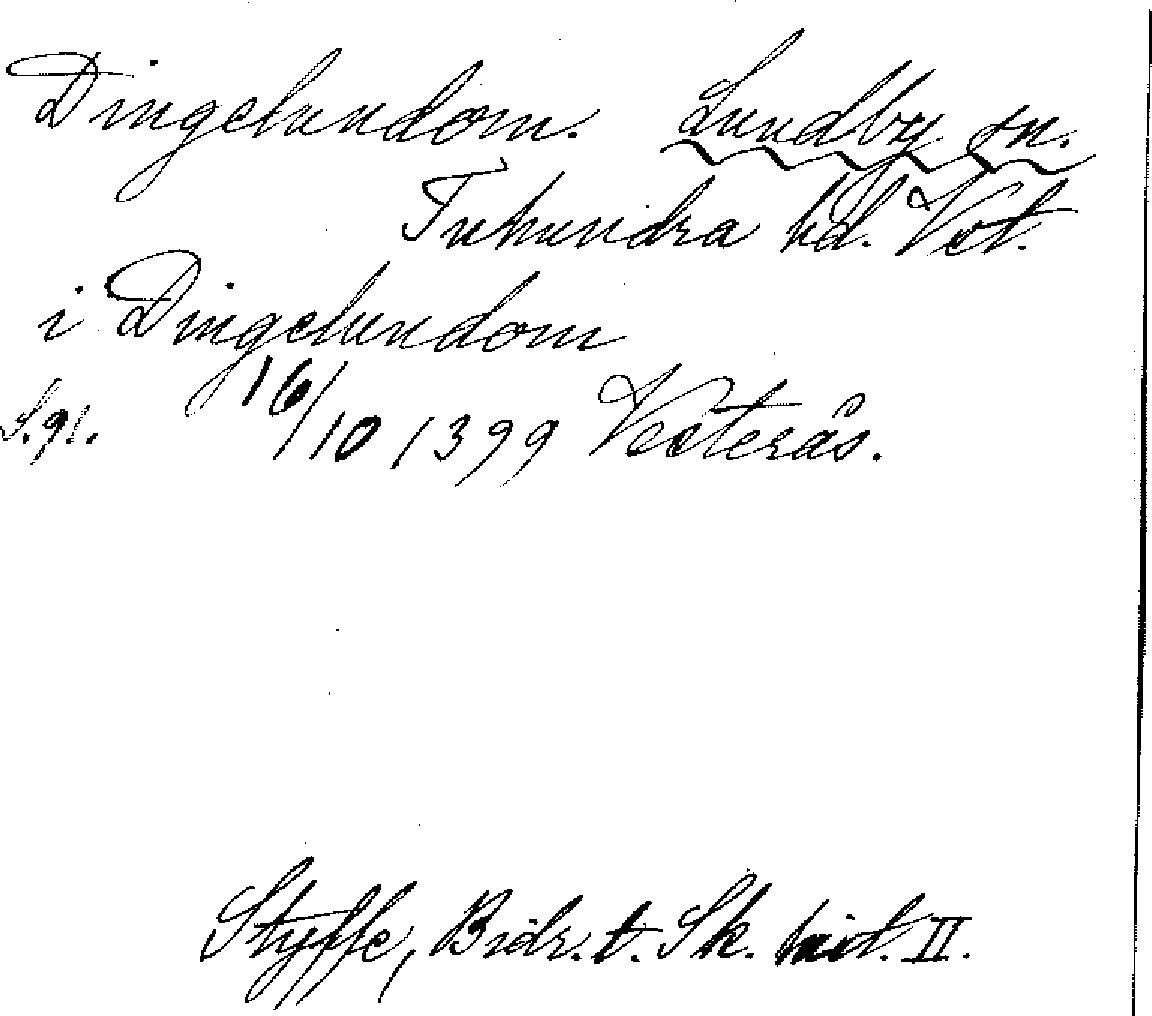 Dingelundom. Lundby sn.
Tuhundra hd. Vst.
i Dingelundom
S. 91. 16/10 1399 Vesterås.
Styffe, Bidr. t. Sk. hist. II.